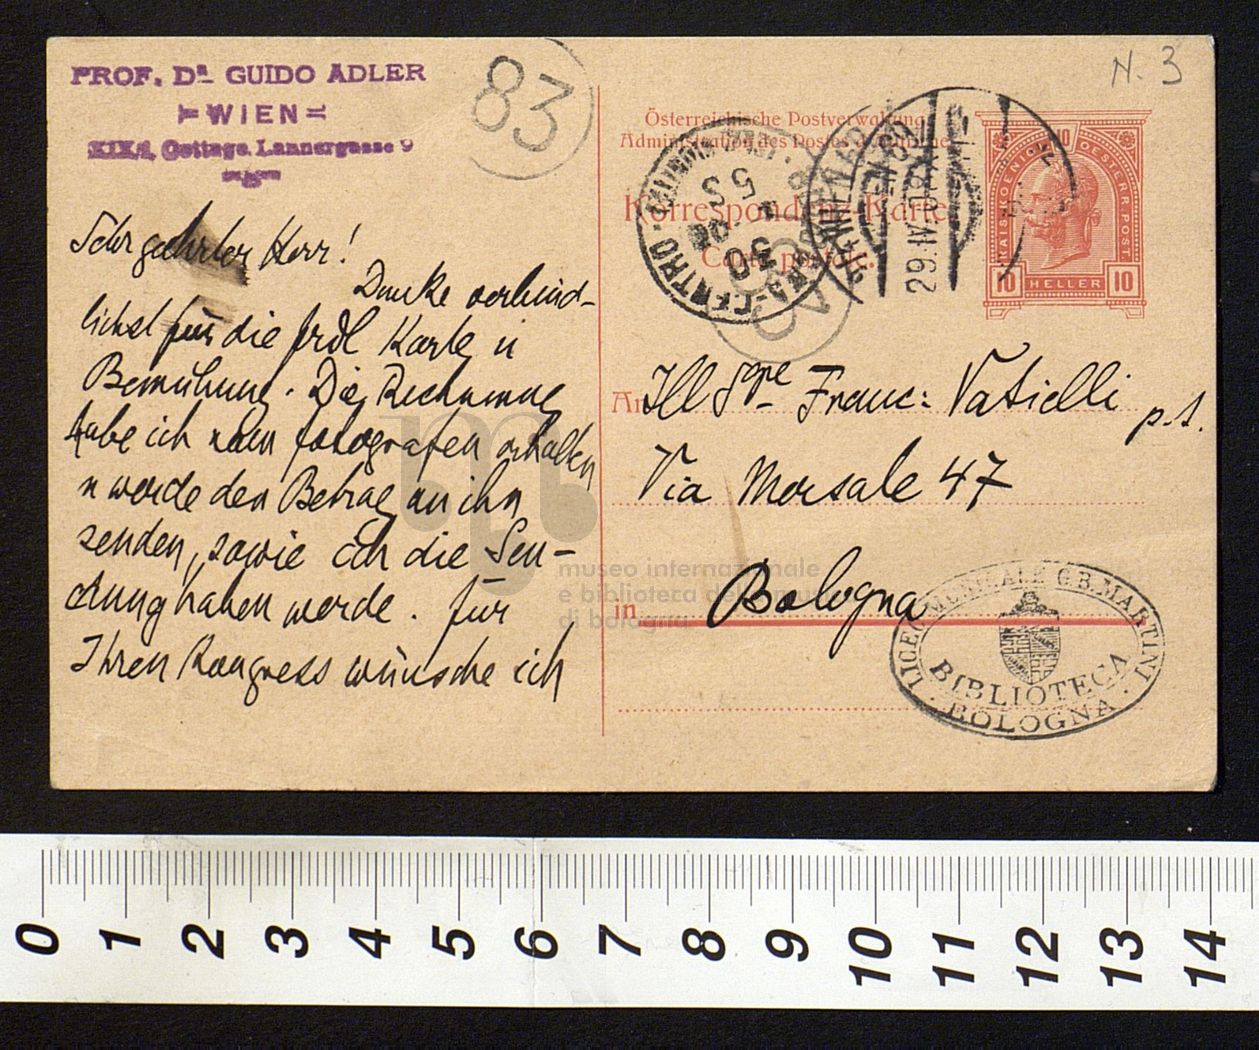 PROF. DR. GUIDO ADLER
WIEN
XIX/1, Cottage Lannergasse 9
83
N. 3
Sehr geehrter Herr!
Danke verbind-
lichst für die frdl Karte u
Bemühung. Die Rechnung
habe ich vom fotografen erhalten
u werde den Betrag an ihn
senden, sowie ich die Sen-
dung haben werde. Für
Ihren Kongress wünsche ich
Österreichische Postverwaltung
Administration des Postes
Korrespondenz-Karte
Carte postale.
CENTRO
30
5 S
29.IV.08
KAIS. KOENIGL. OESTERR. POST
10
10 HELLER 10
An Ill Sgre Franc: Vatielli p.t.
Via Morsale 47
in Bologna
LICEO MUSICALE G.B. MARTINI
BIBLIOTECA
BOLOGNA
museo internazionale
e biblioteca della musica
di bologna
0 1 2 3 4 5 6 7 8 9 10 11 12 13 14